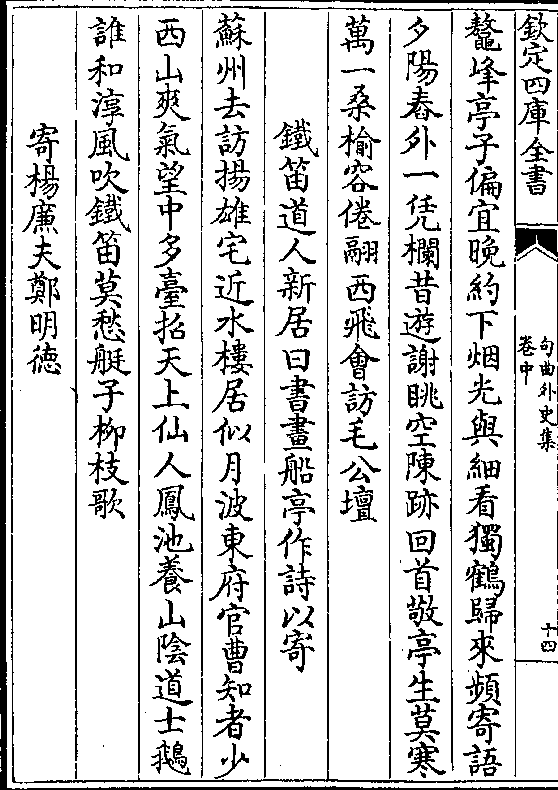 欽定四庫全書
句曲外史集
卷中
十四
鼇峰亭子偏宜晚約下烟光與細看獨鶴歸來頻寄語
夕陽舂外一凭欄昔遊謝眺空陳跡回首敬亭生莫寒
萬一桑榆容倦翮西飛會訪毛公壇
鐵笛道人新居曰書畫船亭作詩以寄
蘇州去訪揚雄宅近水樓居似月波東府官曹知者少
西山爽氣望中多臺招天上仙人鳳池養山陰道士鵝
誰和淳風吹鐵笛莫愁艇子柳枝歌
寄楊廉夫鄭明德